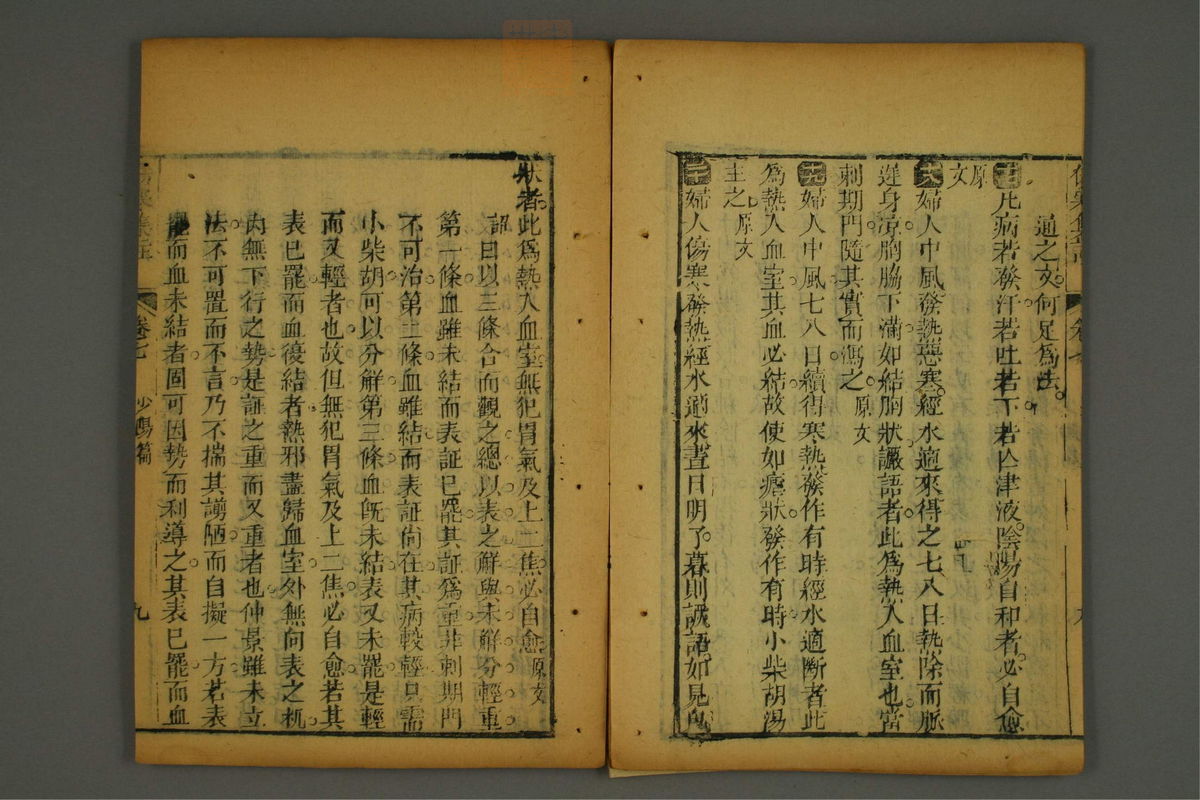 通之文何足為法
十七凡病若發汗若吐若下若亡津液陰陽自和者必自愈
原文
十八婦人中風發熱惡寒經水適來得之七八日熱除而脈
遲身涼胸脇下滿如結胸狀讝語者此為熱入血室也當
刺期門隨其實而瀉之 原文
十九婦人中風七八日續得寒熱發作有時經水適斷者此
為熱入血室其血必結故使如瘧狀發作有時小柴胡湯
主之 原文
二十婦人傷寒發熱經水適來晝日明了暮則讝語如見鬼
狀者此為熱入血室無犯胃氣及上二焦必自愈 原文
詔曰以三條合而觀之總以表之解與未解分輕重
第一條血雖未結而表証已罷其証為重非刺期門
不可治第二條血雖結而表証尚在其病較輕只需
小柴胡可以分解第三條血既未結表又未罷是輕
而又輕者也故但無犯胃氣及上二焦必自愈若其
表已罷而血復結者熱邪盡歸血室外無向表之机
內無下行之勢是証之重而又重者也仲景雖未立
法不可置而不言乃不揣其謭陋而自擬一方若表
罷而血未結者固可因勢而利導之其表已罷而血
卷七 少陽篇 九